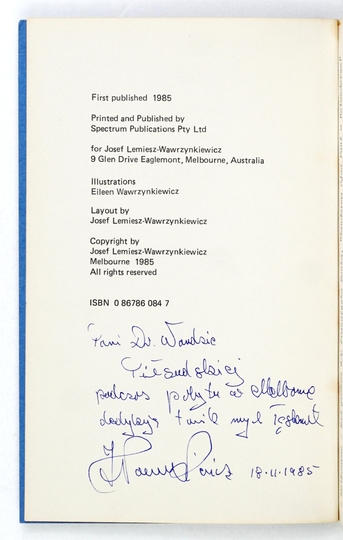 First published 1985
Printed and Published by
Spectrum Publications Pty Ltd
for Josef Lemiesz-Wawrzynkiewicz
9 Glen Drive Eaglemont, Melbourne, Australia
Illustrations
Eileen Wawrzynkiewicz
Layout by
Josef Lemiesz-Wawrzynkiewicz
Copyright by
Josef Lemiesz-Wawrzynkiewicz
Melbourne 1985
All rights reserved
ISBN 0 86786 084 7
Pani Dr. Wandzie
Piłsudskiej
podczas pobytu w Melbourne
18.11.1985